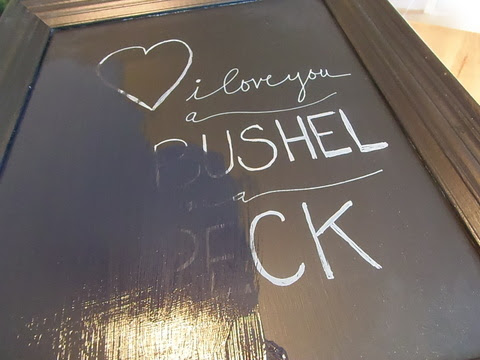 i love you
a
BUSHEL
a
PECK